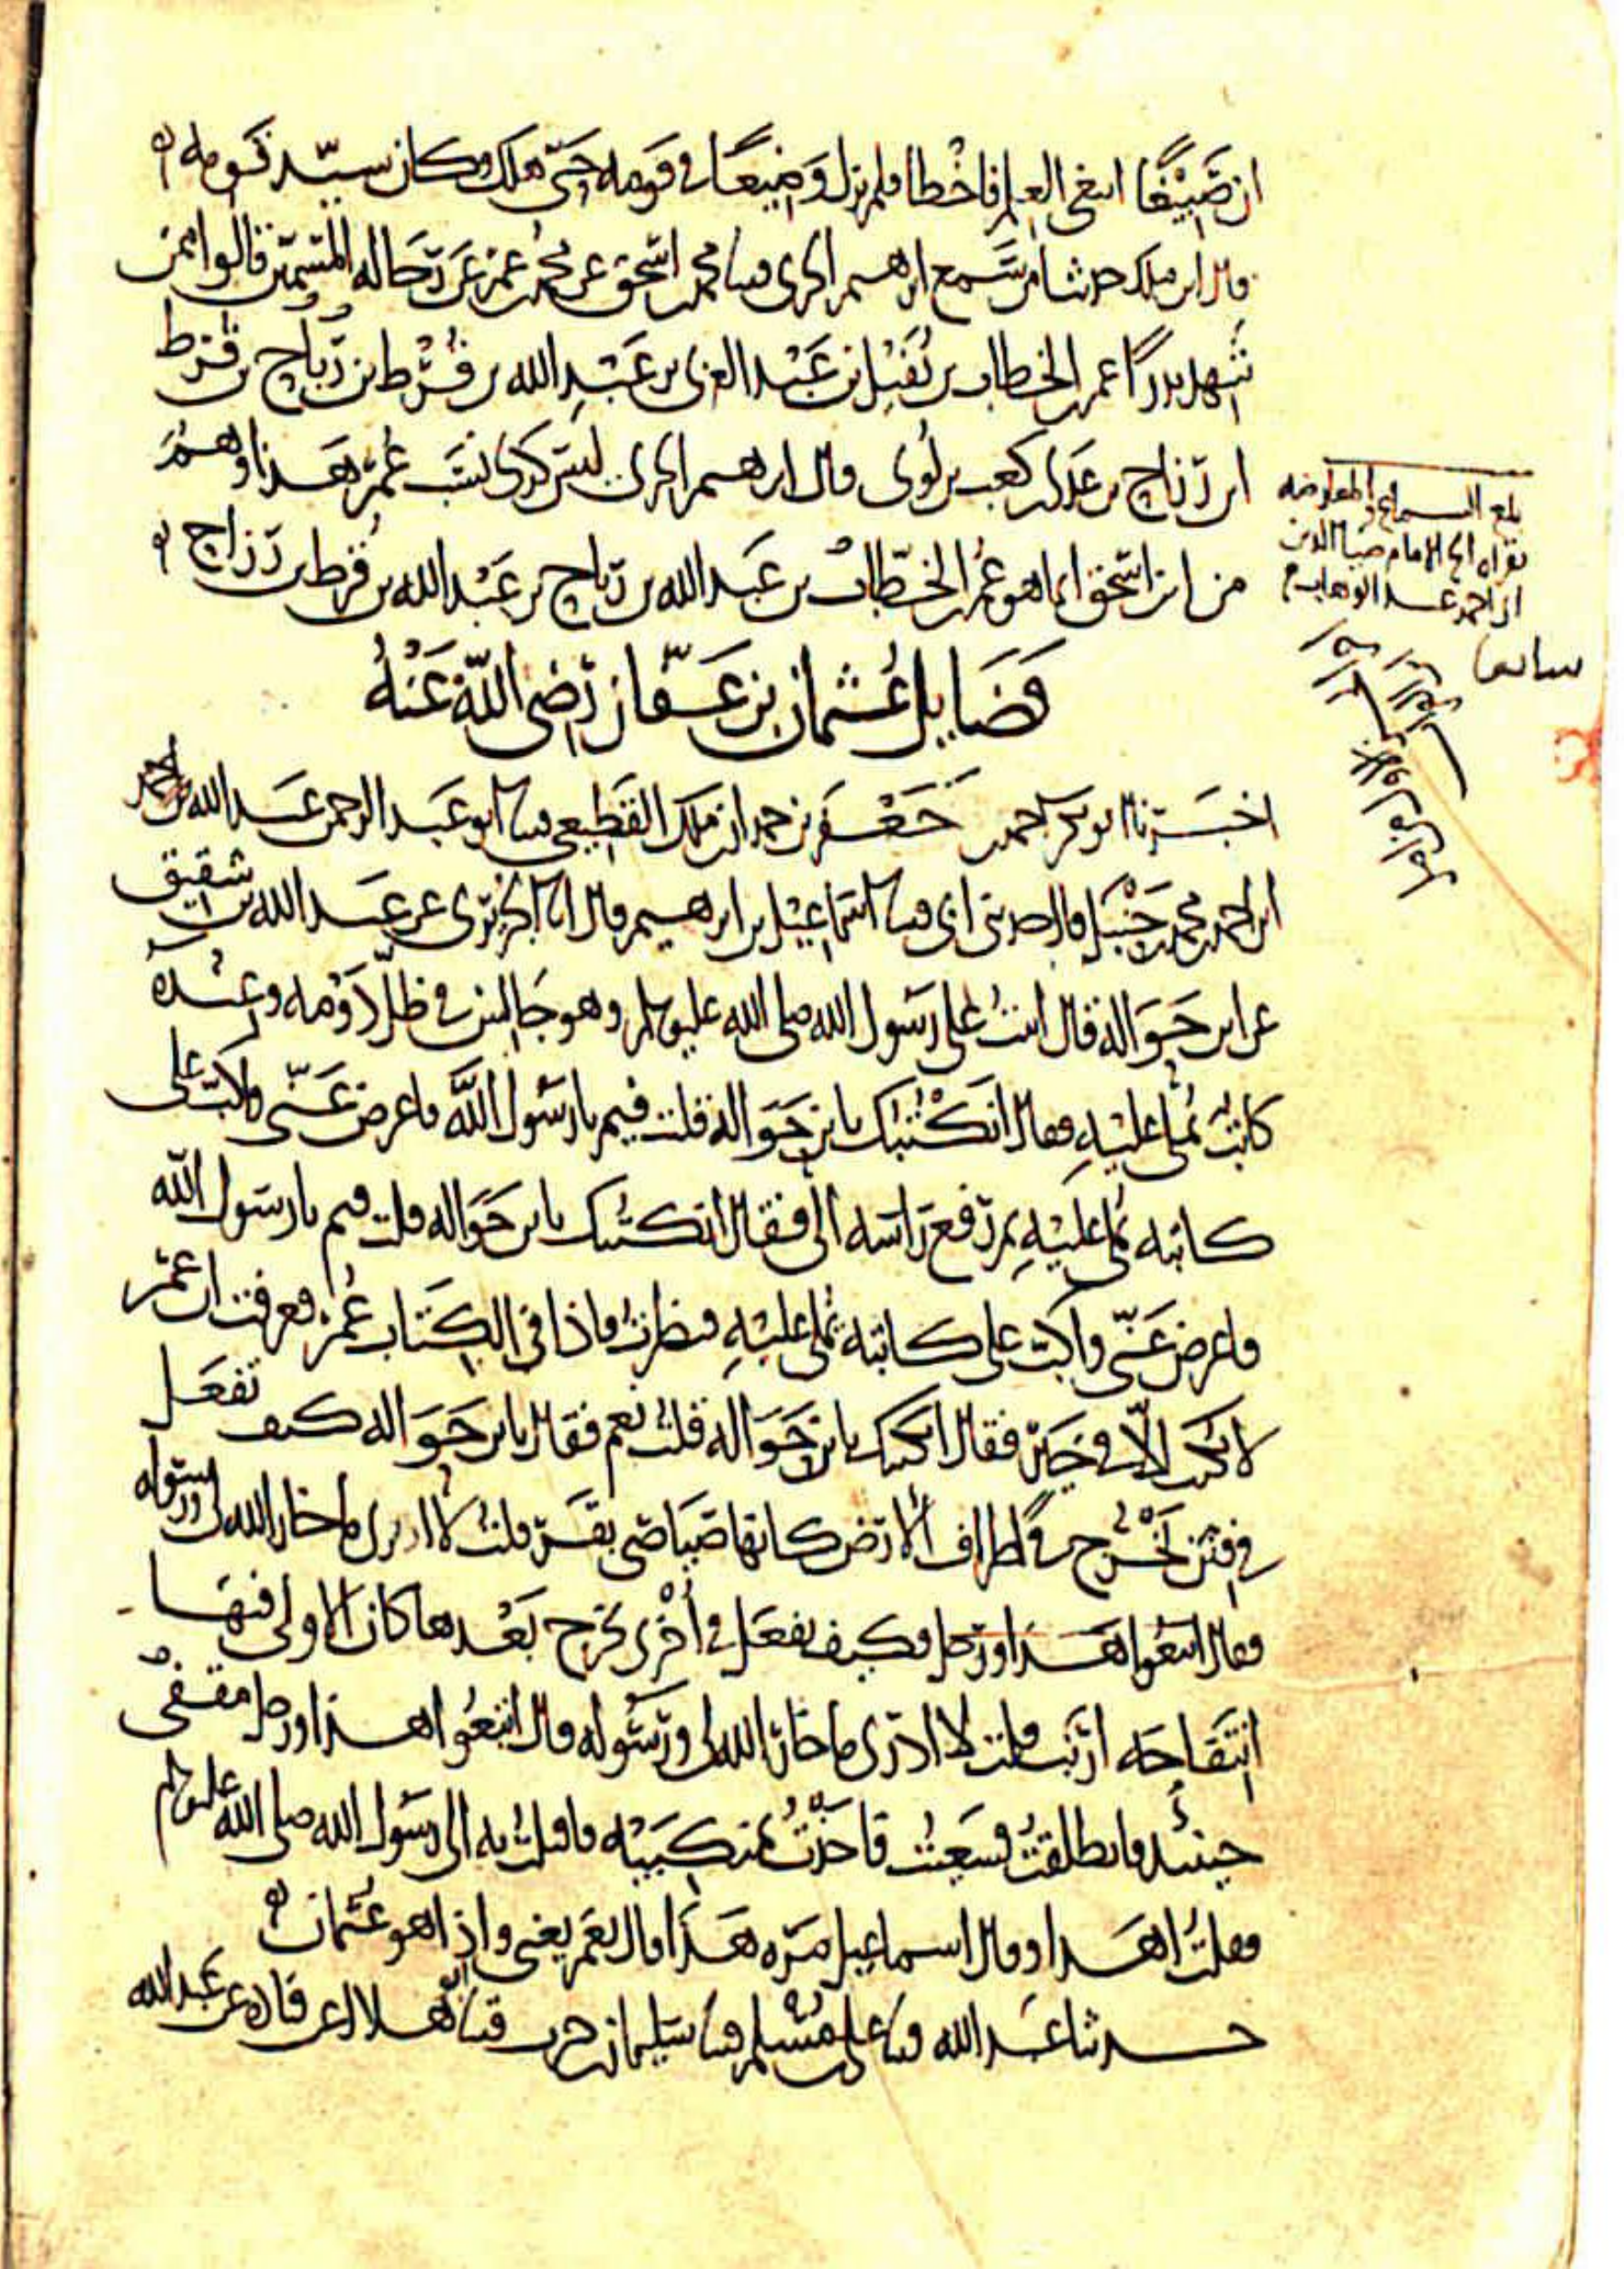 ان صَبِيْغًا ابتغى العلم فاخْطا فلم يزل وَضِيعًا في قومه حتّى هلك وكان سيّد قومه
قال ابن ملك حدثنا من سَمع ابرهيم الحربي قثنا محمد بن اسحق عن محمد بن عمر عن رجاله المُسَمَّين قالوا ممن
شهد بدرًا عمر بن الخطاب بن نُفَيْل بن عَبْد العزى بن عَبْدِ الله بن قُرْط بن رِيَاح بن قرط
ابن رَزَاح بن عَدي بن كعب بن لوى قال ابرهيم الحربي ليس كذى نسَب عُمَر هذا وهمٌ
من ابن اسحق انما هو عُمر بن الخطّاب بن عَبد الله بن رياح بن عَبْد الله بن قُرط بن رَزاح
فَضَايِل عُثمان بن عَفّان رَضِي اللّهُ عَنْهُ
اخبَرنا ابو بكر احمد بن جَعْفَر بن حمدان بن ملك القَطِيعي قثنا ابو عَبد الرحمن عَبد الله بن احمد
ابن محمد بن حَنْبَل قال حدثني ابي قثنا اسَماعِيْل بن ابرهيم قال انا الجُرَيْرى عن عَبد الله بن شقيق
عن ابن حَوَالة قال اتيتُ على رسُول الله صلى الله عليه وسلم وهو جَالِس في ظلّ دَوْمه وعِنْده
كاتبٌ يُملي عليْهِ فقال انَكْتُبُك يابن حَوَالة قلت فيم يا رسُول اللَّه فاعرض عَنّى واكبّ على
كاتبه يُملى عليْهِ ثم رَفع رَاسَه الىَّ فقال انكتبُك يا بن حَوَاله قلت فيم يا رسَول الله
فاعرض عَنّى واكبّ على كاتبه يُملى عليْهِ فنظرتُ فاذا في الكِتَاب عُمَر فعرفت ان عُمَر
لا يُكتب الاّ في خَيْر فقال انكتبك يا بن حَوَالة قلتُ نعم فقال يا بن حَوَاله كيف تفعَل
في فِتَن تَخْرُج في اطراف الارَض كانها صَيَاصي بقَر قلتُ لا ادرى ما خار الله لى ورسوله
فقال اتبعوا هَذا ورجل فكيف تفعَل في أخْرى تخرج بَعْدها كان الاولى فيها
انتَفَاجَه ارنَب قلت لا ادرى ما خار الله لى ورسُوله قال اتبعُوا هذا ورجل مقفى
حينئذ فانطلقتُ فسَعيتُ فاخذتُ بمنكبَيْه فاقبلتُ به الى رسُول الله صلى الله عليه وسلم
فقلتُ اهَذا وقال اسماعيل مَرّه هَذا قال نعَم يعني واذا هو عُثمان
حدثنا عَبد الله قثنا على بن مُسْلم قثنا سليمان بن حرب قثنا ابو هلال عن قتاده عن عَبد الله
بلغ السماع والمعارضه
بقراه اخي الامام ضيا الدين
ابن احمد بن عبد الوهاب